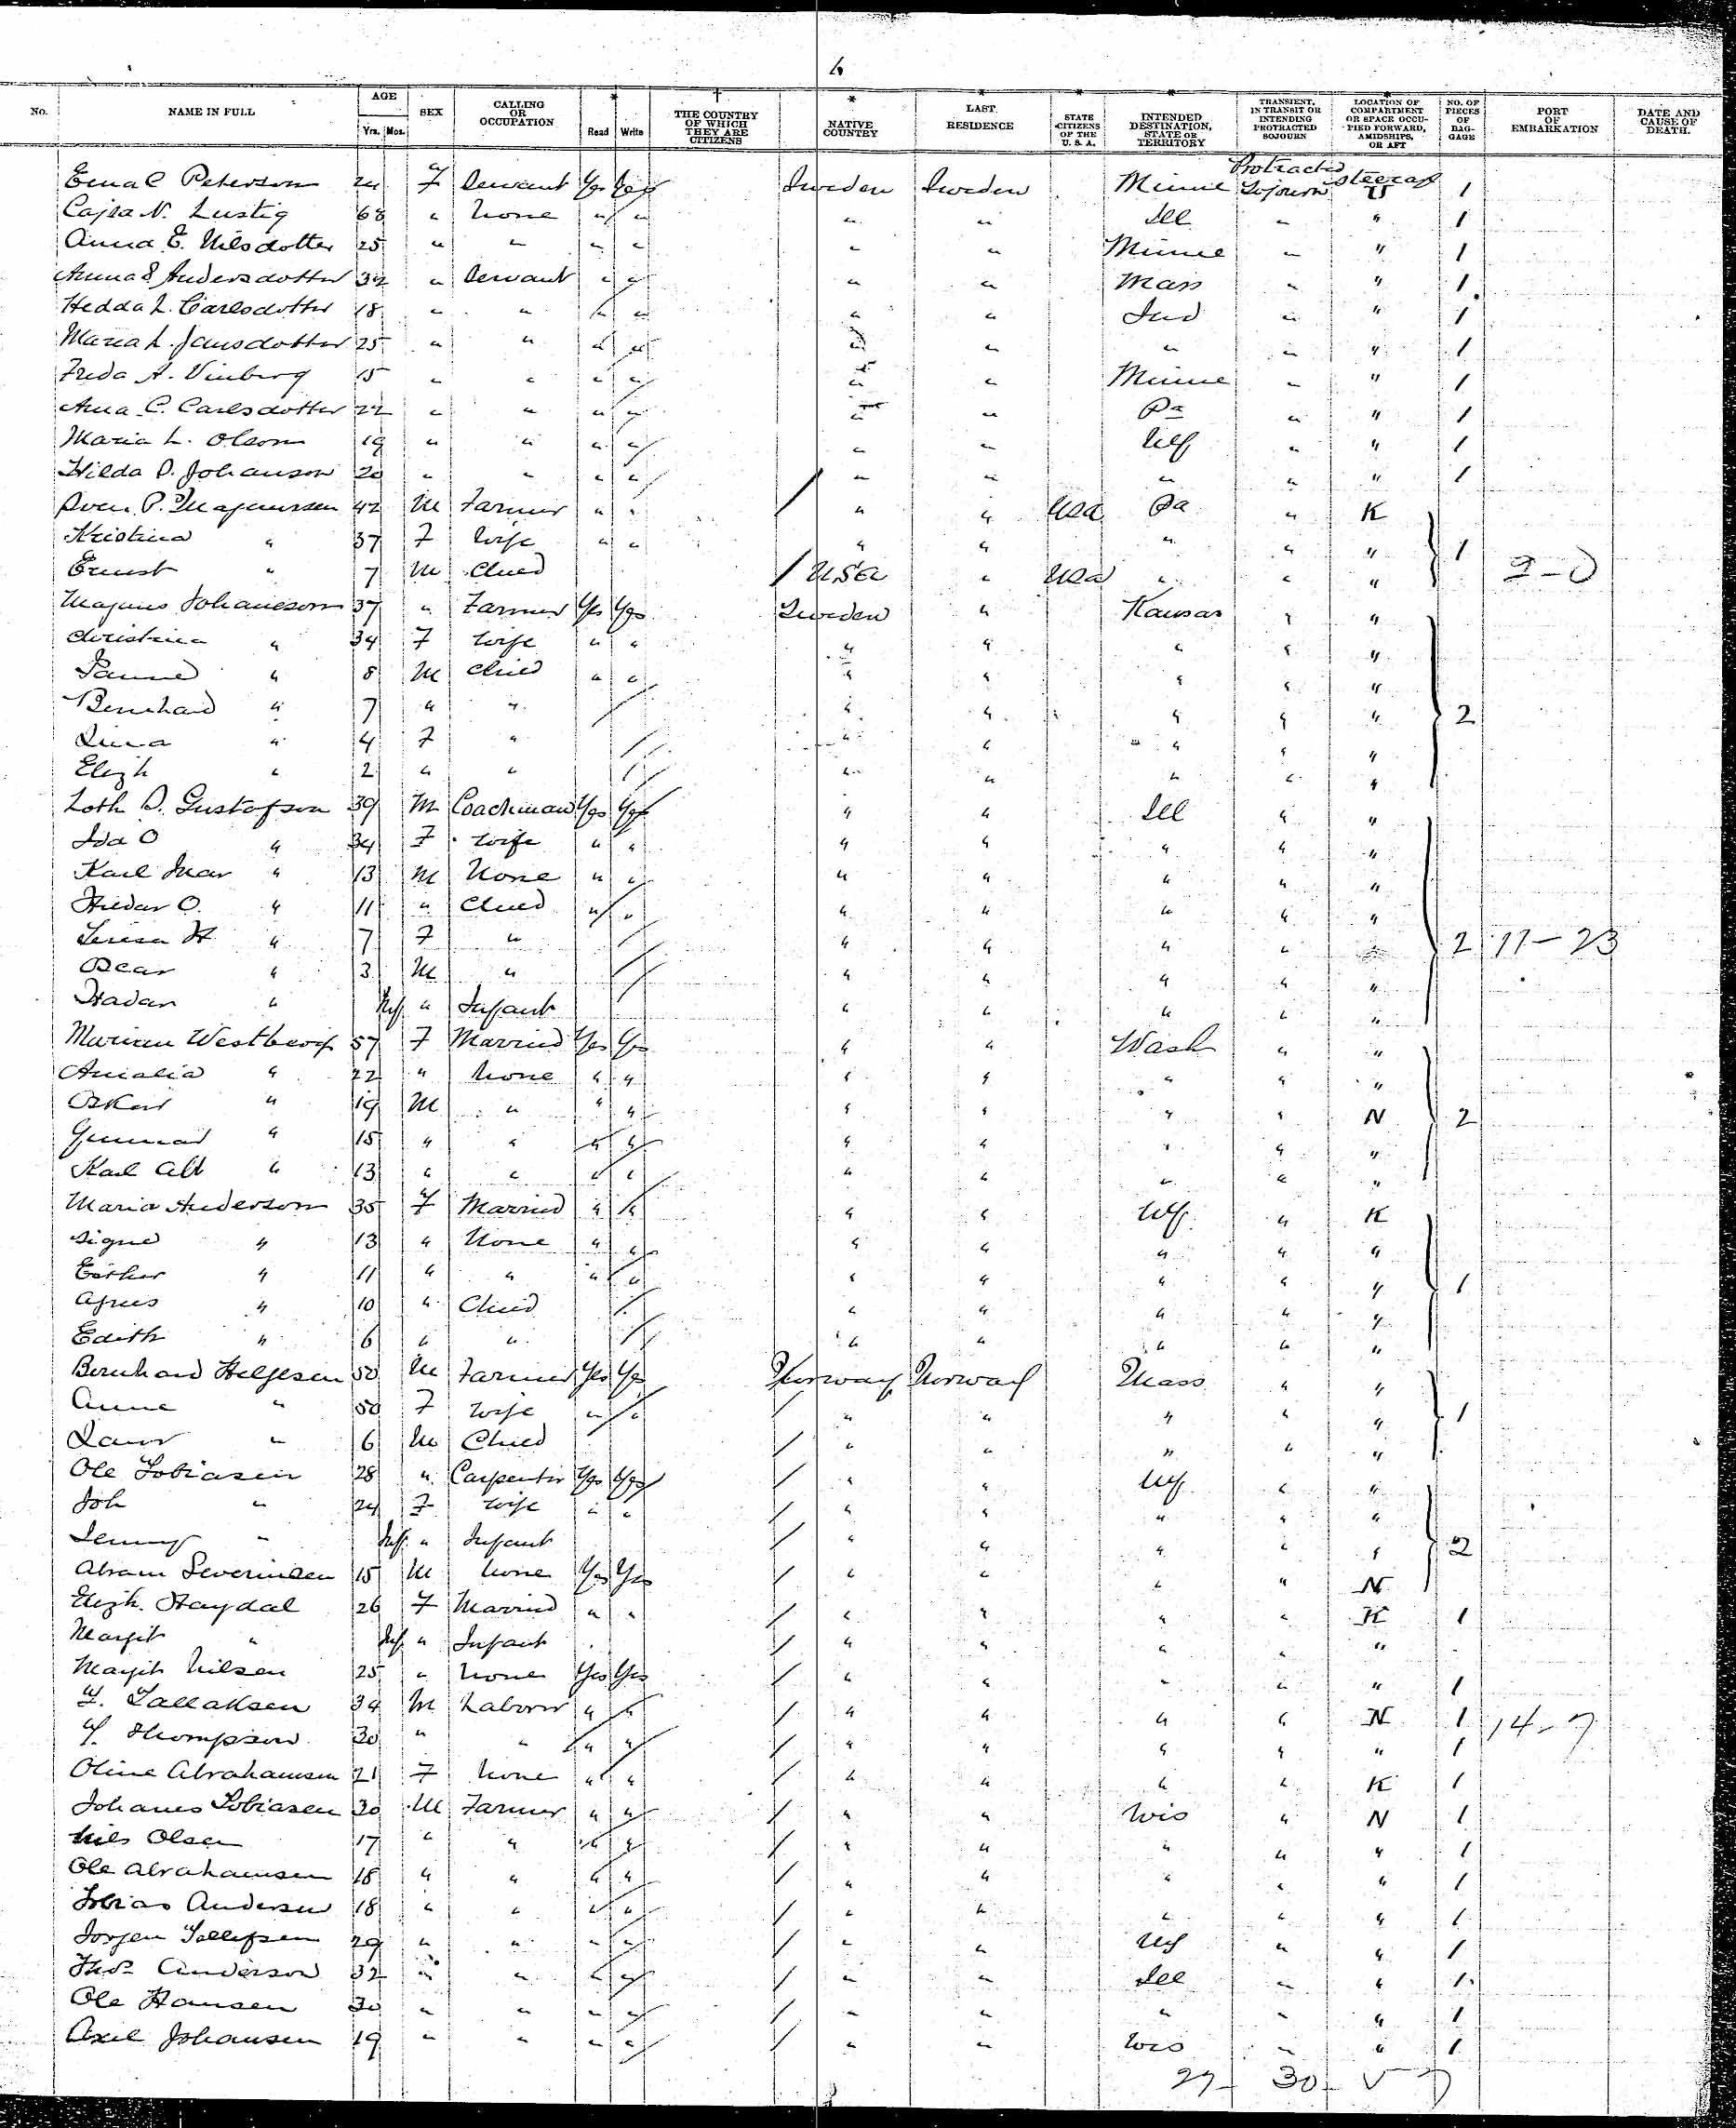 6
No. NAME IN FULL AGE Yrs. Mos. SEX CALLING OR OCCUPATION * Read Write † THE COUNTRY OF WHICH THEY ARE CITIZENS * NATIVE COUNTRY * LAST RESIDENCE * STATE CITIZENS OF THE U. S. A. * INTENDED DESTINATION, STATE OR TERRITORY TRANSIENT, IN TRANSIT OR INTENDING PROTRACTED SOJOURN LOCATION OF COMPARTMENT OR SPACE OCCUPIED FORWARD, AMIDSHIPS, OR AFT NO. OF PIECES OF BAGGAGE PORT OF EMBARKATION DATE AND CAUSE OF DEATH.
Peterson 24 F Servant Yes Yes Sweden Sweden Minne Protracted Sojourn Steerage U 1
Cajsa N. Lustig 68 " None " " " " Ill " " 1
Anna E. Nilsdotter 25 " " " " " " Minne " " 1
Anna S Andersdotter 32 " Servant " " " " Mass " " 1
Hedda L. Carlsdotter 18 " " " " " " Ind " " 1
Maria L. Jansdotter 25 " " " " " " " " " 1
Freda A. Vinberg 15 " " " " " " Minne " " 1
Anna C. Carlsdotter 22 " " " " " " Pa " " 1
Maria L. Olson 19 " " " " " " NY " " 1
Hilda D. Johanson 20 " " " " " " " " " 1
Sven P. Magnussen 42 M Farmer " " " " USA Pa " K
Kristina " 37 F Wife " " " " " " " 1
Ernest " 7 M Child USA " USA " " " 2-0
Magnus Johaneson 37 " Farmer Yes Yes Sweden " Kansas " "
Christina " 34 F Wife " " " " " " "
" 8 M Child " " " " " " "
Bernhard " 7 " " " " " " " 2
Lina " 4 F " " " " " "
Elizh " 2 " " " " " " "
Loth D. Gustafson 39 M Coachman Yes Yes " " Ill " "
Ida O " 34 F Wife " " " " " " "
Karl Ivar " 13 M None " " " " " " "
Hildar O. " 11 " Child " " " " " " "
" 7 F " " " " " " 2 11-23
Oscar " 3 M " " " " " "
" Inf " Infant " " " " "
57 F Married Yes Yes " " Wash " "
Amalia " 22 " None " " " " " " "
Oskar " 19 M " " " " " " " N 2
Gunnar " 15 " " " " " " " " "
Karl Alb " 13 " " " " " " " " "
Maria Anderson 35 F Married " " " " NY " K
Signe " 13 " None " " " " " " "
Esther " 11 " " " " " " " " " 1
Agnes " 10 " Child " " " " "
Edith " 6 " " " " " " "
Bernhard Helgesen 50 M Farmer Yes Yes Norway Norway Mass " "
Anne " 50 F Wife " " " " " " " 1
" 6 M Child " " " " "
Ole Tobiasen 28 " Carpenter Yes Yes " " NY " "
Joh " 24 F Wife " " " " " " "
Jenny " Inf " Infant " " " " " 2
Abram Severinsen 15 M None Yes Yes " " " " N
Elizh. Haydal 26 F Married " " " " " " K 1
Margit " Inf " Infant " " " " "
Margit Nilsen 25 " None Yes Yes " " " " " 1
T. Tallaksen 34 M Laborer " " " " " " N 1 14-7
T. Thompson 30 " " " " " " " " " 1
Oline Abrahamsen 21 F None " " " " " " K 1
Johanes Tobiasen 30 M Farmer " " " " Wis " N 1
Nils Olsen 17 " " " " " " " " " 1
Ole Abrahamsen 18 " " " " " " " " " 1
Tobias Andersen 18 " " " " " " " " " 1
Jorgen Tellefsen 29 " " " " " " NY " " 1
Thos Anderson 32 " " " " " " Ill " " 1
Ole Hansen 30 " " " " " " " " " 1
Axel Johansen 19 " " " " " " Wis " " 1
27- 30-